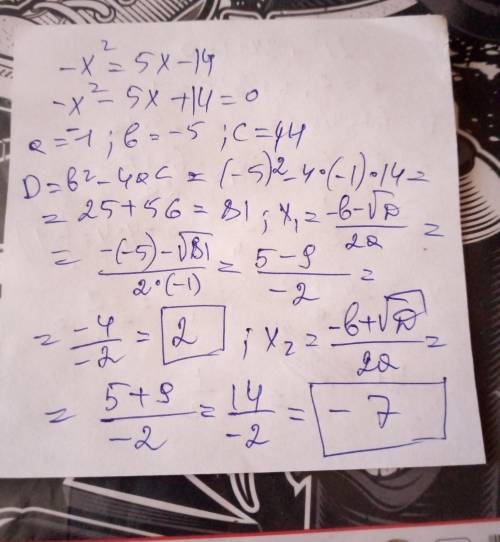 -x² = 5x-14
-x² - 5x + 14 = 0
a = -1 ; b = -5 ; c = 14
D = b² - 4ac = (-5)² - 4·(-1)·14 =
= 25 + 56 = 81 ; x₁ = (-b-√D)/2a =
= (-(-5)-√81)/(2·(-1)) = (5-9)/(-2) =
= (-4)/(-2) = 2 ; x₂ = (-b+√D)/2a =
= (5+9)/(-2) = 14/(-2) = -7